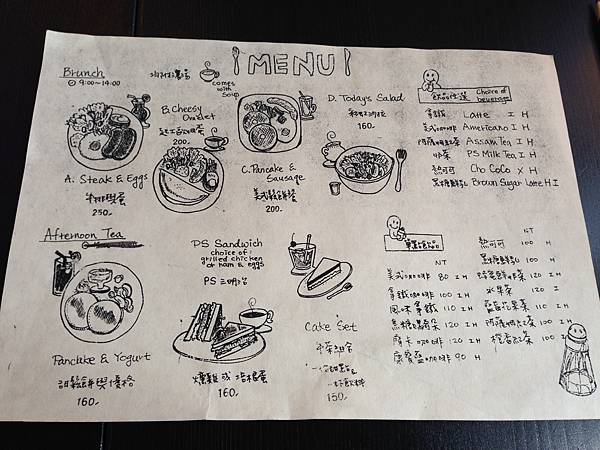 MENU
Brunch
9:00~14:00
comes
with
Soup
A. Steak & Eggs
牛排與蛋
250.
B. Cheesy
Omelet
200.
C. Pancake &
Sausage
美式鬆餅餐
200.
D. Today's Salad
160.
飲品任選 Choice of
beverage
拿鐵 Latte I H
美式咖啡 Americano I H
阿薩姆紅茶 Assam Tea I H
奶茶 PS Milk Tea I H
熱可可 Cho CoCo X H
Brown Sugar Latte H I
Afternoon Tea
Pancake & Yogurt
甜鬆餅與優格
160.
PS Sandwich
choice of
grilled chicken
or ham & eggs
PS 三明治
燻雞 或 培根蛋
160.
Cake Set
午茶組合
一份甜點
一杯飲料
150.
單點飲品
NT
美式咖啡 80 I H
拿鐵咖啡 100 I H
風味拿鐵 110 I H
120 I H
摩卡咖啡 120 I H
90 H
NT
熱可可 100 H
100 H
120 I H
水果茶 120 I
110 I H
阿薩姆紅茶 100 I H
120 I H